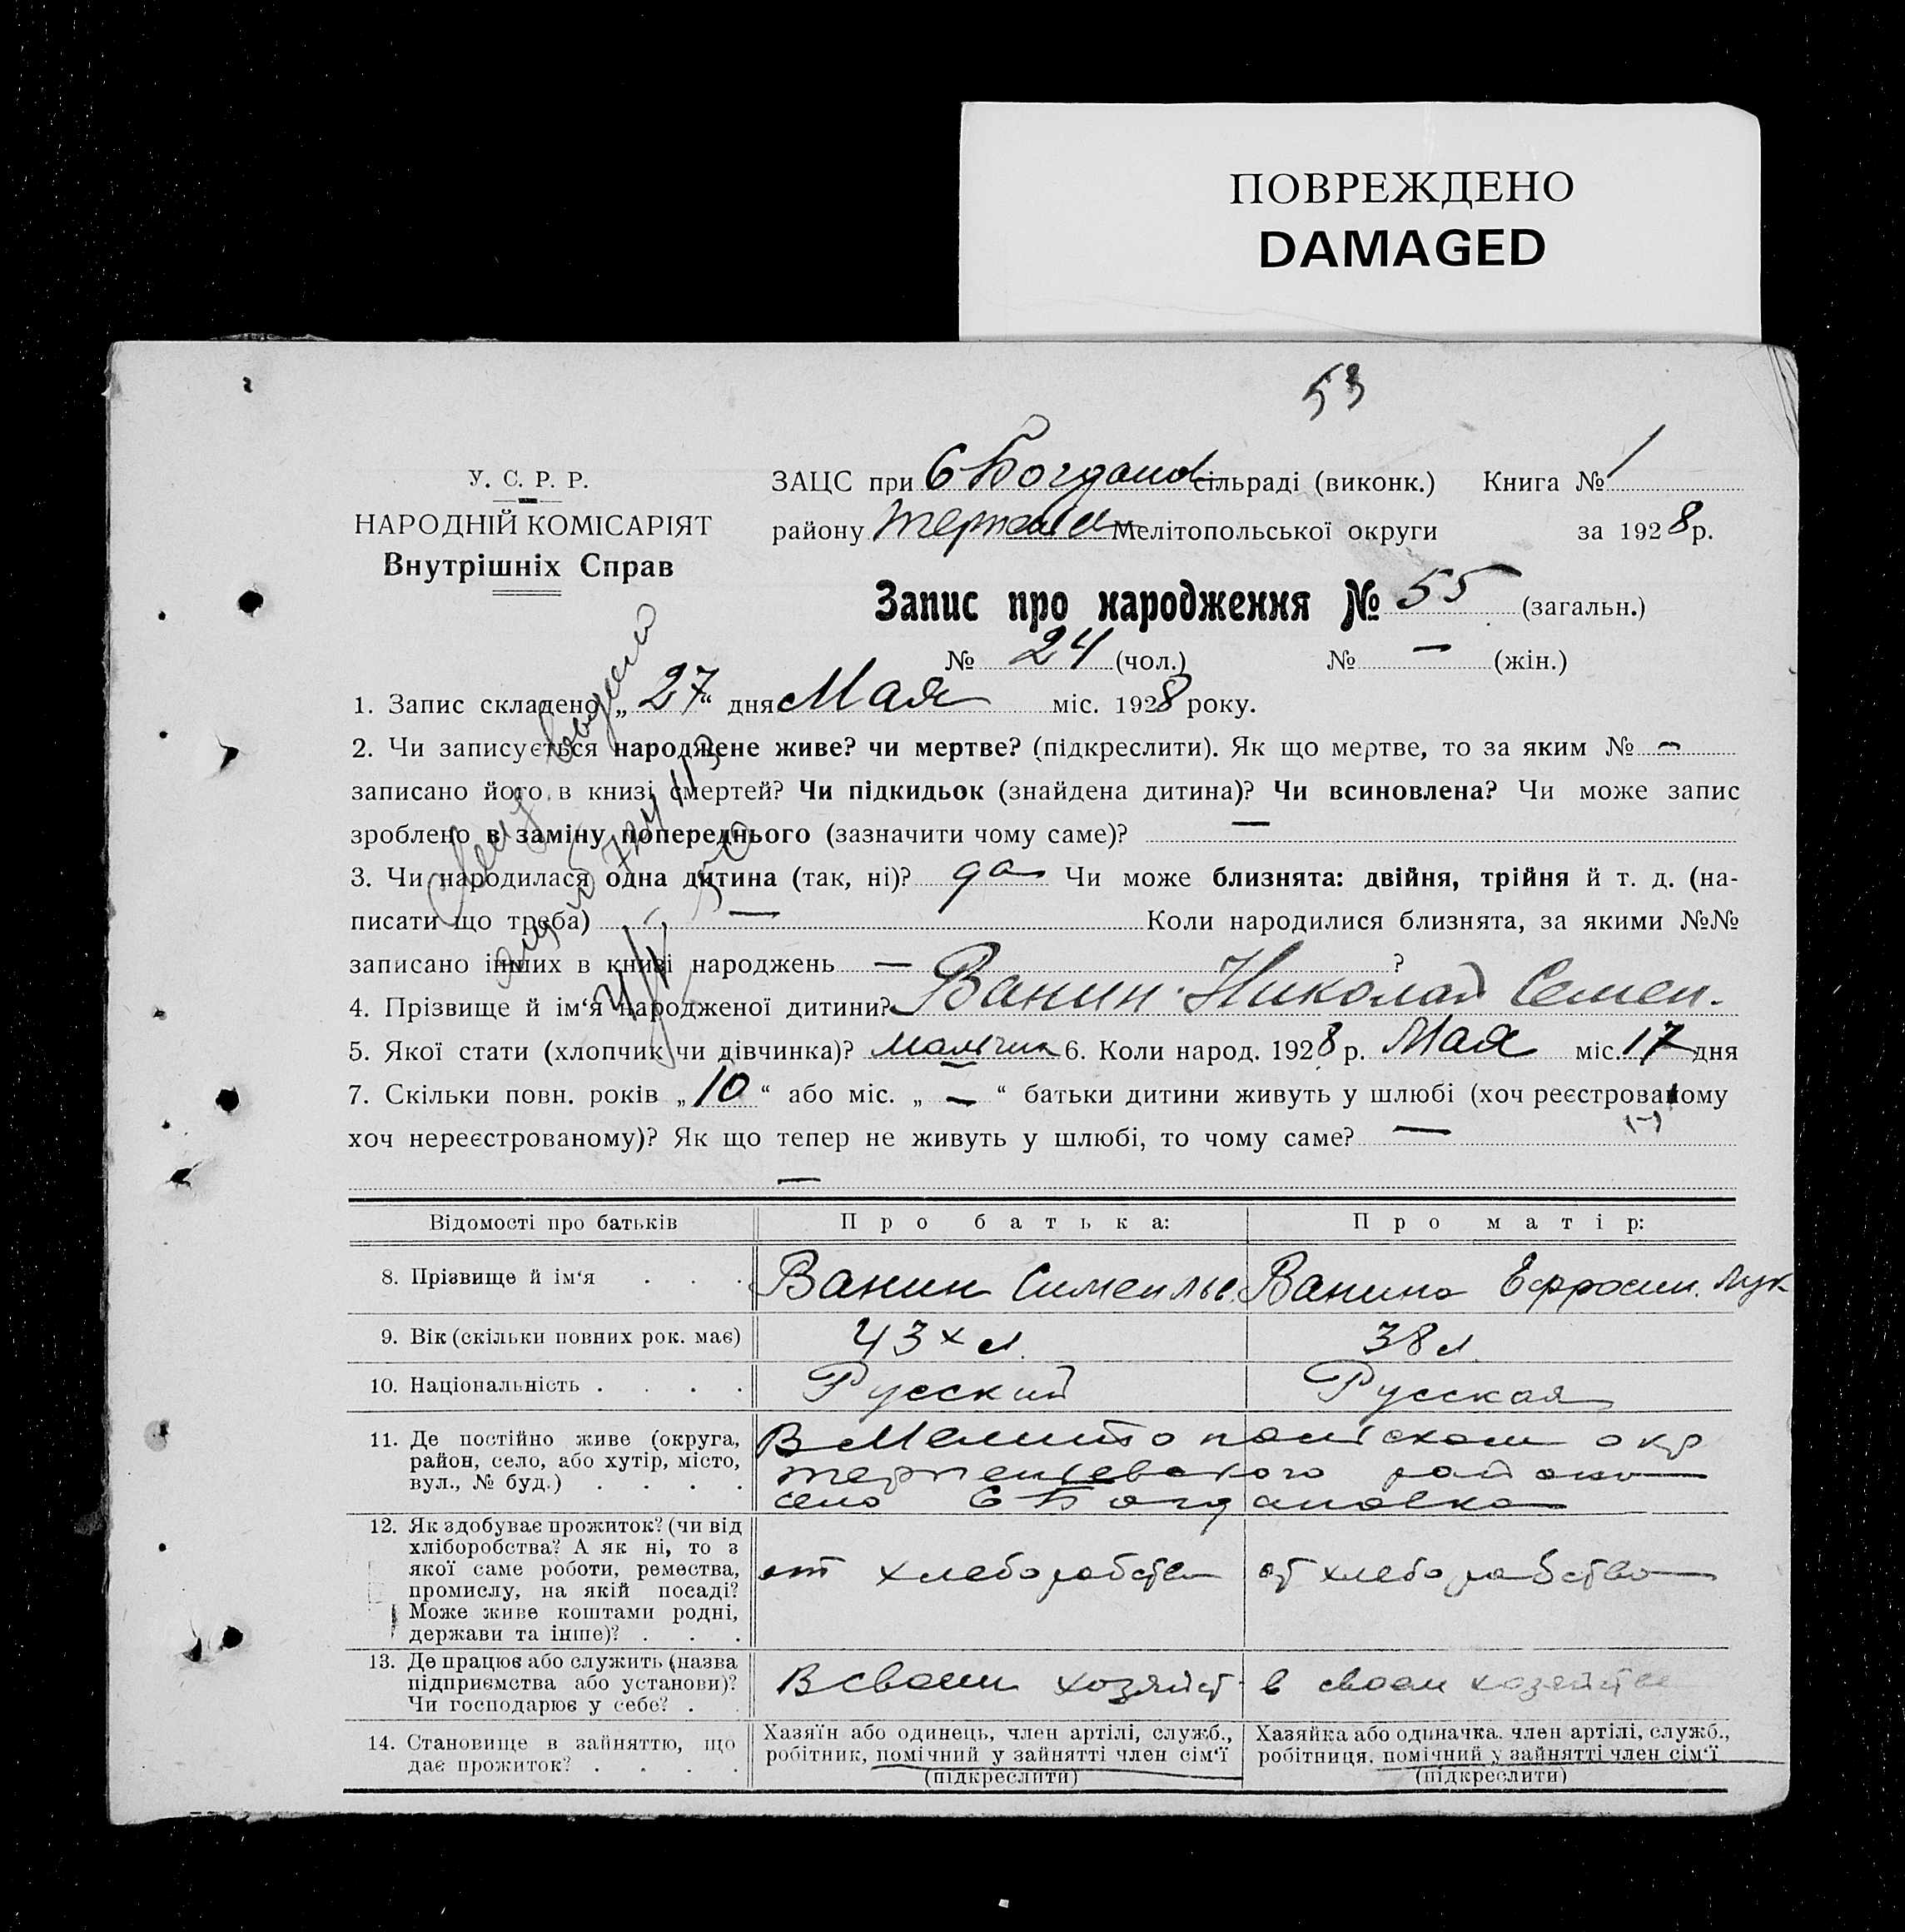 ПОВРЕЖДЕНО
DAMAGED
53
У. С. Р. Р.
НАРОДНІЙ КОМІСАРІЯТ
Внутрішніх Справ
ЗАЦС при Богданов сільраді (виконк.) Книга № 1
району Мелітопольської округи за 1928 р.
Запис про народження № 55 (загальн.)
№ 24 (чол.) № — (жін.)
1. Запис складено „27“ дня Мая міс. 1928 року.
2. Чи записується народжене живе? чи мертве? (підкреслити). Як що мертве, то за яким № —
записано його в книзі смертей? Чи підкидьок (знайдена дитина)? Чи всиновлена? Чи може запис
зроблено в заміну попереднього (зазначити чому саме)? —
3. Чи народилася одна дитина (так, ні)? да Чи може близнята: двійня, трійня й т. д. (на-
писати що треба) — Коли народилися близнята, за якими №№
записано інших в книзі народжень — ?
4. Прізвище й ім‘я народженої дитини? Ванин Николай Семен.
5. Якої стати (хлопчик чи дівчинка)? мальчик 6. Коли народ. 1928 р. Мая міс. 17 дня
7. Скільки повн. років „10“ або міс. „ — “ батьки дитини живуть у шлюбі (хоч реєстрованому
хоч нереєстрованому)? Як що тепер не живуть у шлюбі, то чому саме? —
—
Відомості про батьків Про батька: Про матір:
8. Прізвище й ім‘я . . . Ванин Ванина Ефросин. Лук
9. Вік (скільки повних рок. має) 43х л. 38 л.
10. Національність . . . . Русский Русская
11. Де постійно живе (округа,
район, село, або хутір, місто,
вул., № буд.) . . . .
В Мелитопольском окр
терпеньевского района
село Богдановка
12. Як здобуває прожиток? (чи від
хліборобства? А як ні, то з
якої саме роботи, ремества,
промислу, на якій посаді?
Може живе коштами родні,
держави та інше)? . . .
от хлеборобства от хлеборобство
13. Де працює або служить (назва
підприємства або установи)?
Чи господарює у себе? .
В своем хозяйст. в своем хозяйстве
14. Становище в зайняттю, що
дає прожиток? . . . .
Хазяїн або одинець, член артілі, служб.,
робітник, помічний у зайнятті член сім‘ї
(підкреслити)
Хазяйка або одиначка. член артілі, служб.,
робітниця. помічний у зайнятті член сім‘ї
(підкреслити)